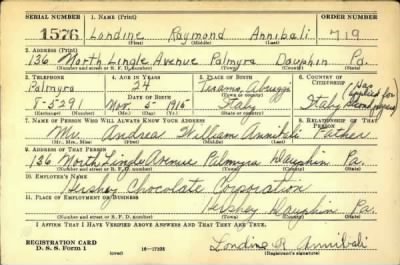 SERIAL NUMBER 1. NAME (Print) ORDER NUMBER
1576 Londine Raymond Annibali 719
(First) (Middle) (Last)
2. ADDRESS (Print)
136 North Lingle Avenue Palmyra Dauphin Pa.
(Number and street or R. F. D. number) (Town) (County) (State)
3. TELEPHONE 4. AGE IN YEARS 5. PLACE OF BIRTH 6. COUNTRY OF CITIZENSHIP
Palmyra 24 Teramo, Abruzzi Italy (Has applied for
8-5291 Nov 5 1915 Italy second papers)
(Exchange) (Number) (Mo.) (Day) (Yr.) (State or country)
7. NAME OF PERSON WHO WILL ALWAYS KNOW YOUR ADDRESS 8. RELATIONSHIP OF THAT PERSON
Mr. Andrea William Annibali Father
(Mr., Mrs., Miss) (First) (Middle) (Last)
9. ADDRESS OF THAT PERSON
136 North Lingle Avenue Palmyra Dauphin Pa.
(Number and street or R. F. D. number) (Town) (County) (State)
10. EMPLOYER'S NAME
Hershey Chocolate Corporation
11. PLACE OF EMPLOYMENT OR BUSINESS
Hershey Dauphin Pa.
(Number and street or R. F. D. number) (Town) (County) (State)
I AFFIRM THAT I HAVE VERIFIED ABOVE ANSWERS AND THAT THEY ARE TRUE.
REGISTRATION CARD
D. S. S. Form 1 (over) Londine R Annibali
(Registrant's signature)